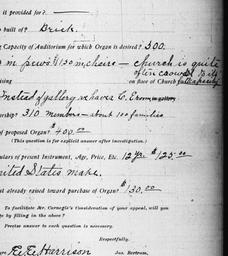 it provided for?
built of? Brick.
g Capacity of Auditorium for which Organ is desired? 500.
in pews & 130 in choirs — church is quite
often crowded
ising on face of Church
Instead of gallery we have C. E. room
ership? 310 members — about 100 families
of proposed Organ? $400.00
(This question is for explicit answer after investigation.)
ulars of present Instrument, Age, Price, Etc. 12 yr. $125.00
nited States make.
nt already raised toward purchase of Organ? $130.00
To facilitate Mr. Carnegie's Consideration of your appeal, will you
te by filling in the above?
Precise answer to each question is necessary.
Respectfully,
E. E. Harrison
Jas. Bertram,